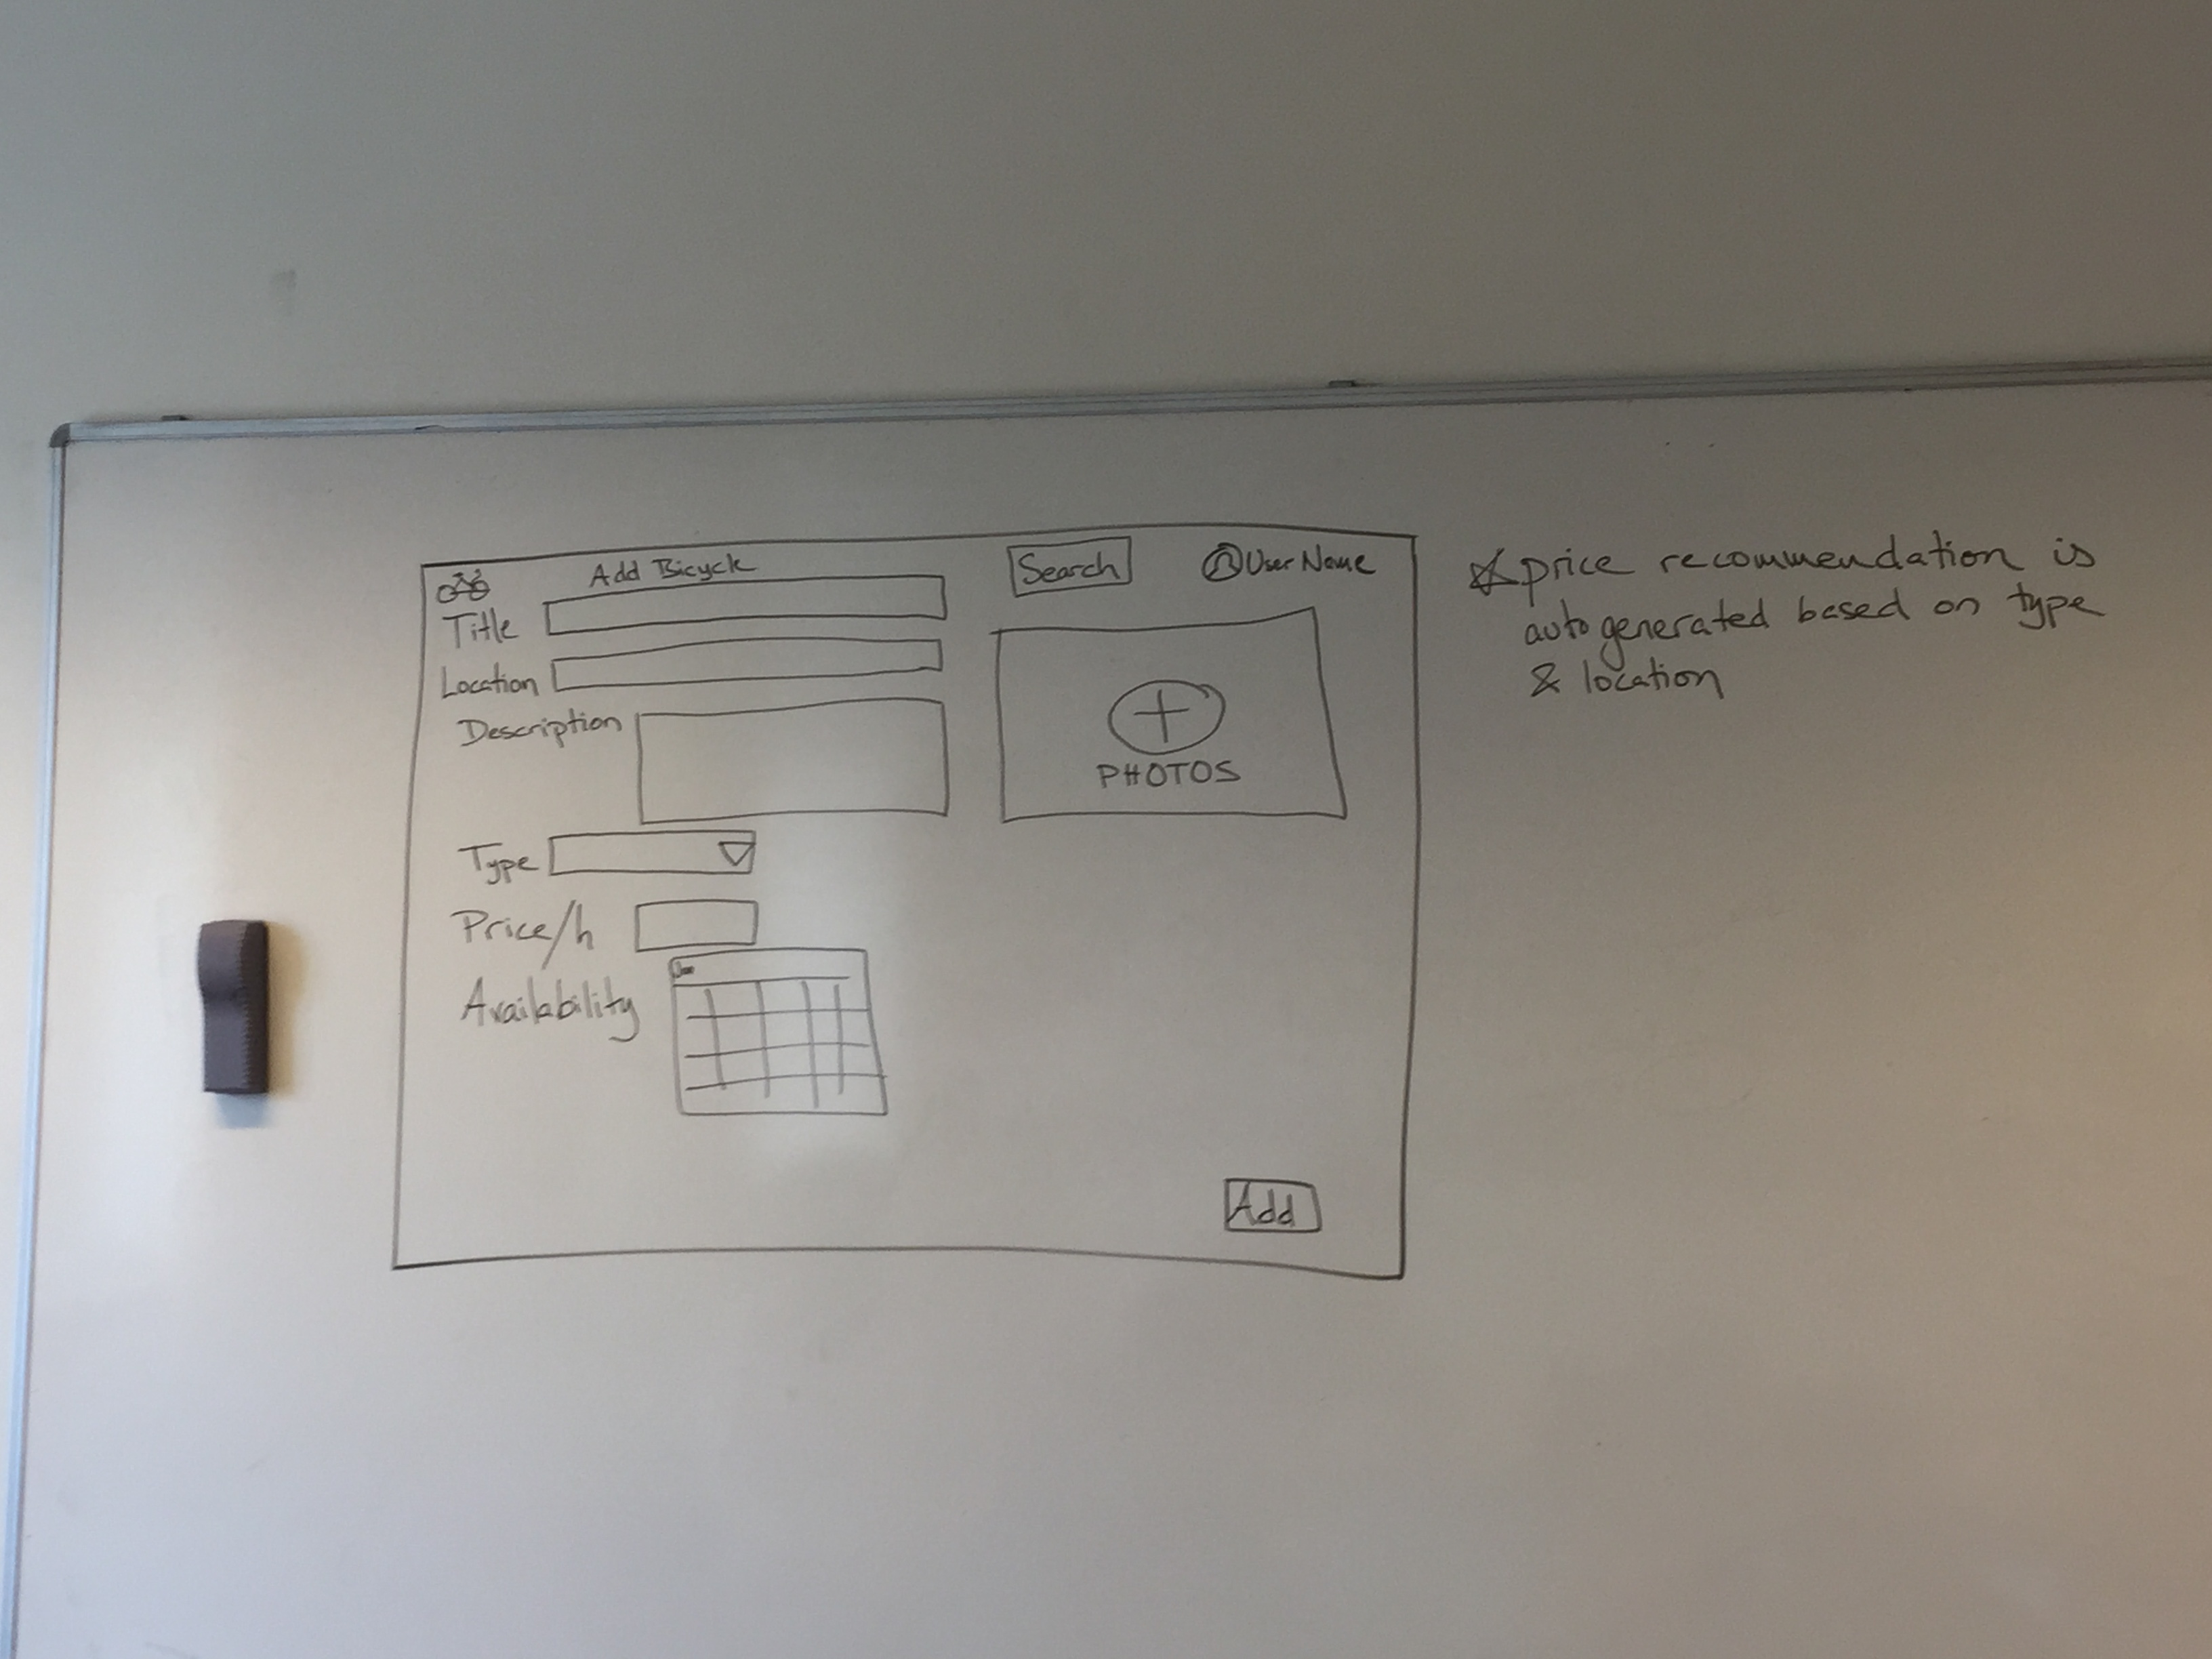 Add Bicycle
Search
User Name
Title
Location
Description
PHOTOS
Type
Price/h
Availability
Add
price recommendation is
auto generated based on type
& location